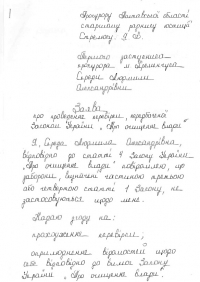 Прокурору Полтавської області
старшому раднику юстиції
Стрелюку, Я. Д.
Першого заступника
прокурора м Кременчука
Середи Людмили
Олександрівни
Заява
про проведення перевірки, передбаченої
Законом України „Про очищення влади"
Я, Середа Людмила Олександрівна,
відповідно до статті 4 Закону України
„Про очищення влади" повідомляю, що
заборони, визначені частиною третьою
або четвертою статті 1 Закону, не
застосовуються щодо мене.
Надаю згоду на:
проходження перевірки;
оприлюднення відомостей щодо
себе відповідно до вимог Закону
України „Про очищення влади".